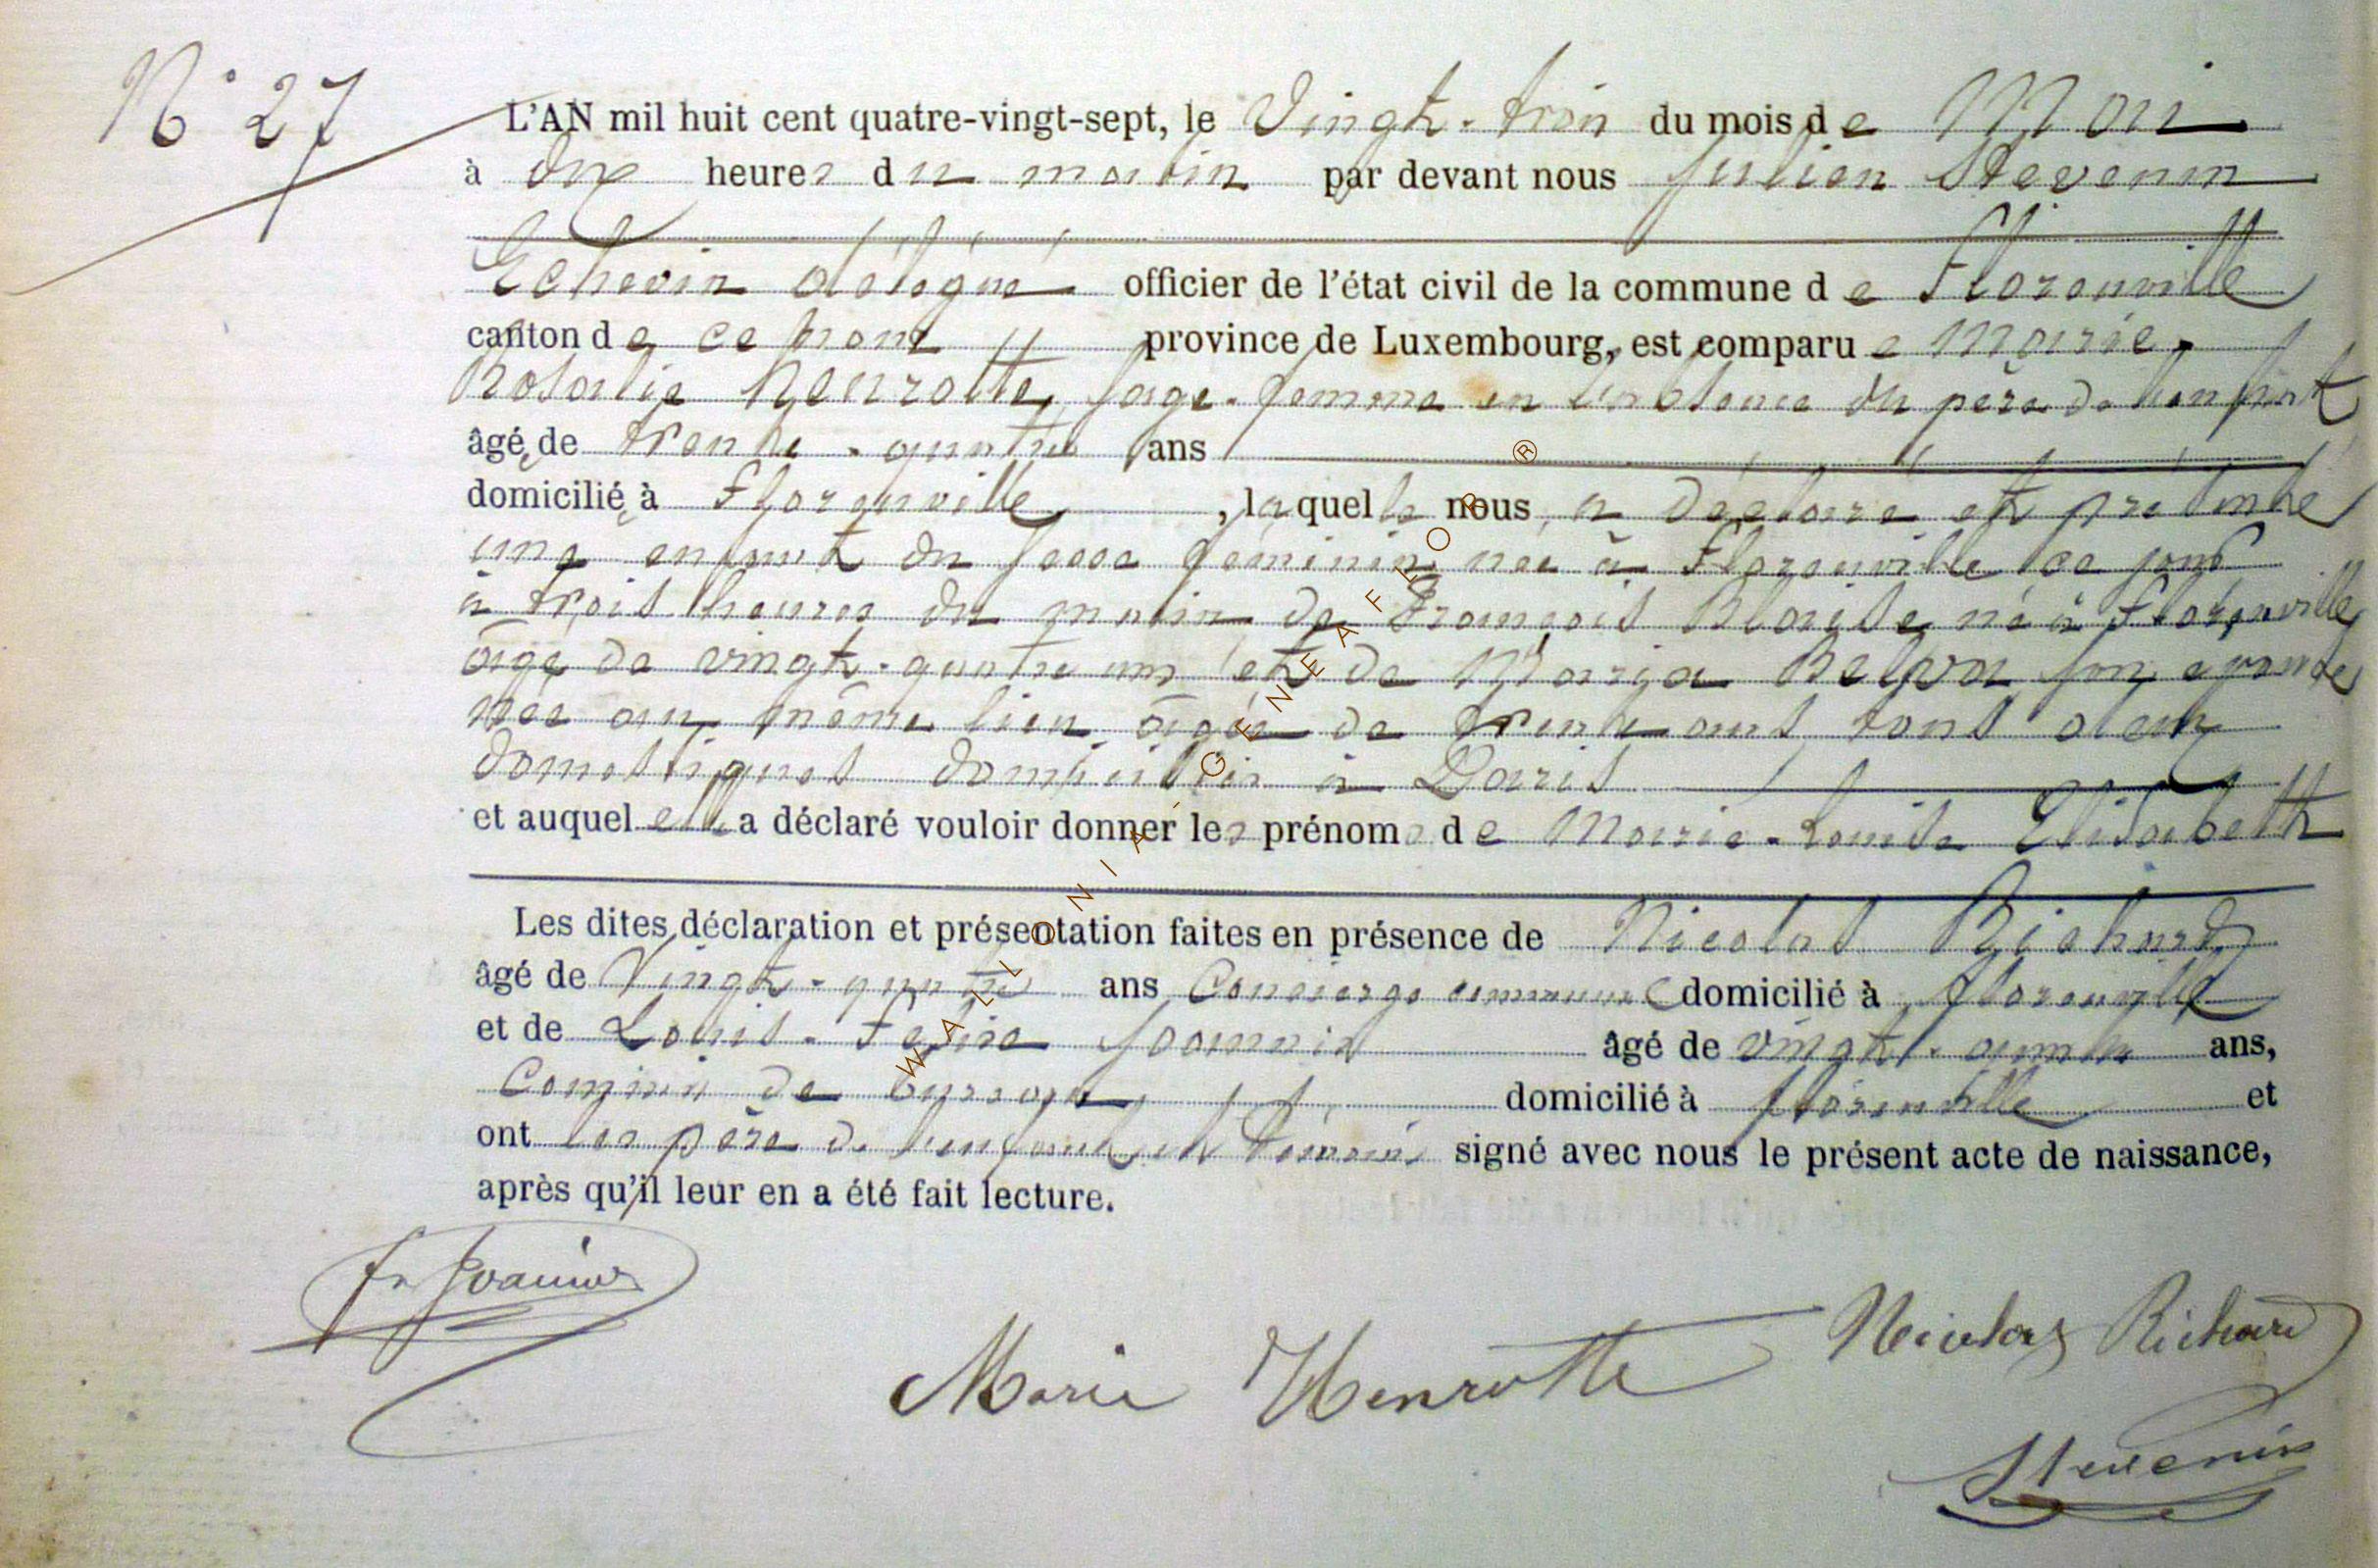 N° 27
L'AN mil huit cent quatre-vingt-sept, le Vingt-trois du mois de Mai
à dix heures du matin par devant nous Julien Stevenin
Echevin délégué officier de l'état civil de la commune de Florenville
canton de ce nom province de Luxembourg, est comparue Marie
Rosalie Henrotte, sage-femme en l'absence du père de l'enfant
âgée de trente-quatre ans
domiciliée à Florenville, laquelle nous a déclaré et présenté
une enfant du sexe féminin née à Florenville ce jour
à trois heures du matin de François Blaise né à Florenville
âgé de vingt-quatre ans et de Maria Belva son épouse
née au même lieu âgée de trente ans tous deux
domestiques domiciliés à Paris
et auquel elle a déclaré vouloir donner les prénoms de Marie-Louise Elisabeth
Les dites déclaration et présentation faites en présence de Nicolas Richard
âgé de Vingt-quatre ans Concierge communal domicilié à Florenville
et de Louis- Joannin âgé de vingt- ans,
Commis de domicilié à Florenville et
ont père de l'enfant et témoins signé avec nous le présent acte de naissance,
après qu'il leur en a été fait lecture.
Joannin
Marie Henrotte
Nicolas Richard
Stevenin
WALLONIA GENEA FLOR ®